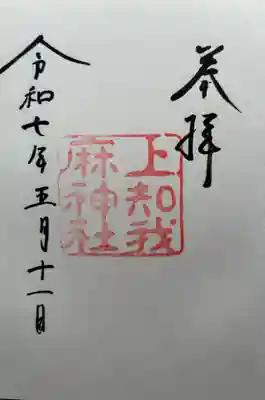 奉拝
上知我
麻神社
令和七年五月十一日